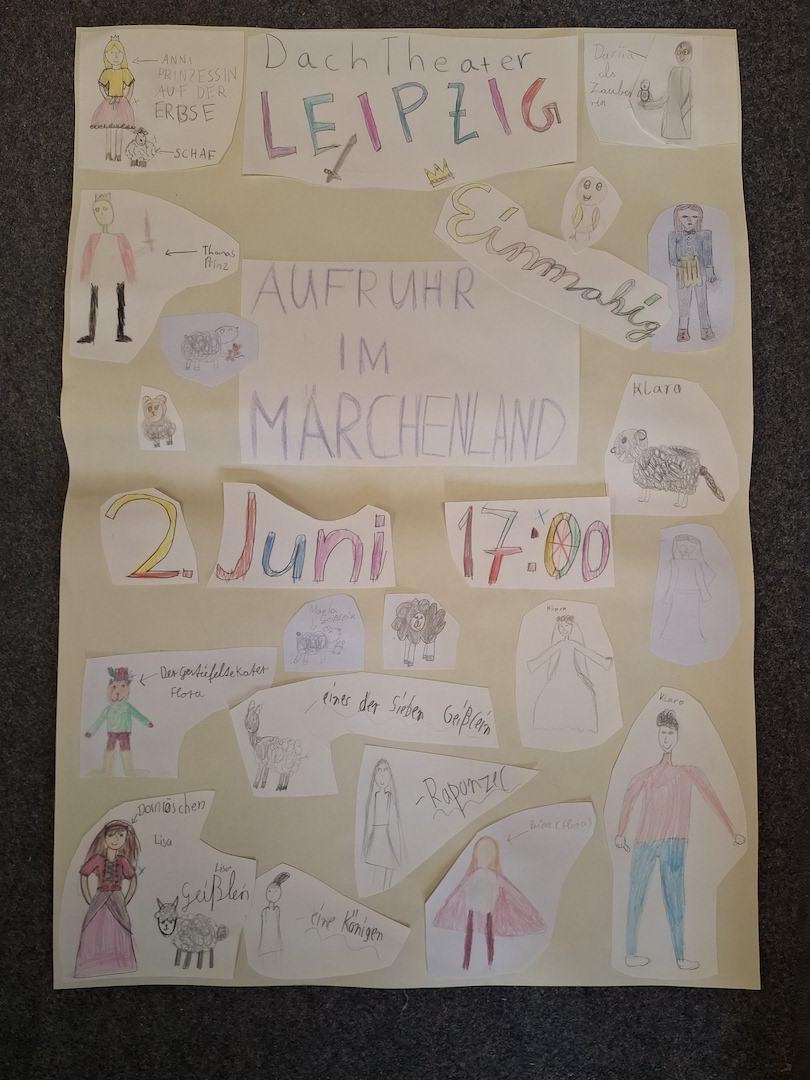 DachTheater
LEIPZIG
ANNI
PRINZESSIN
AUF DER
ERBSE
SCHAF
Dariia
als
Zauber
rin
Einmahig
Thomas
Prinz
AUFRUHR
IM
MÄRCHENLAND
Klara
2. Juni 17:00
Klara
Der Gestiefelte Kater
Flora
eines der Sieben Geißlein
Klara
-Rapunzel
Dornröschen
Lisa
Prinz (Flora)
Lisa
Geißlein
- eine Königen